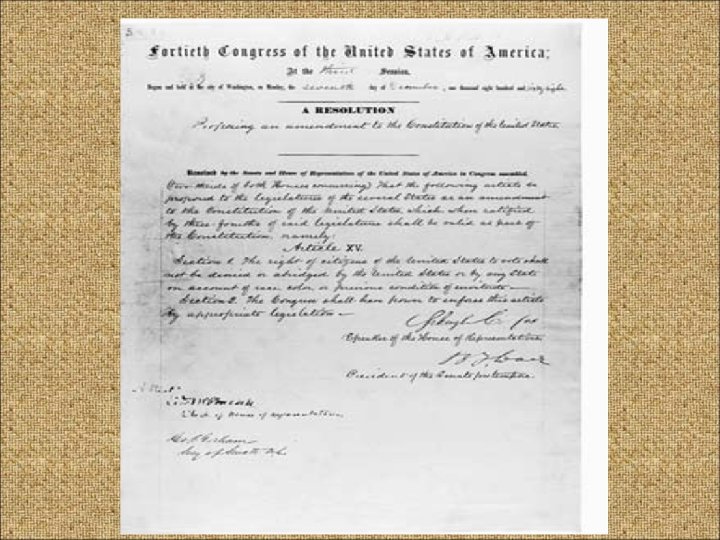 Fortieth Congress of the United States of America;
At the third Session,
Begun and held at the city of Washington, on Monday, the seventh day of December, one thousand eight hundred and sixty-eight
A RESOLUTION
Proposing an amendment to the Constitution of the United States.
Resolved by the Senate and House of Representatives of the United States of America in Congress assembled,
(two-thirds of both Houses concurring) That the following article be
proposed to the legislatures of the several States as an amendment
to the Constitution of the United States, which when ratified
by three-fourths of said legislatures shall be valid as part of
the Constitution, namely:
Article XV.
Section 1. The right of citizens of the United States to vote shall
not be denied or abridged by the United States or by any State
on account of race, color, or previous condition of servitude—
Section 2. The Congress shall have power to enforce this article
by appropriate legislation—
Schuyler Colfax
Speaker of the House of Representatives
B. F. Wade
President of the Senate pro tempore.
Attest
Clerk of House of Representatives
Geo. C. Gorham
Secy of Senate U.S.